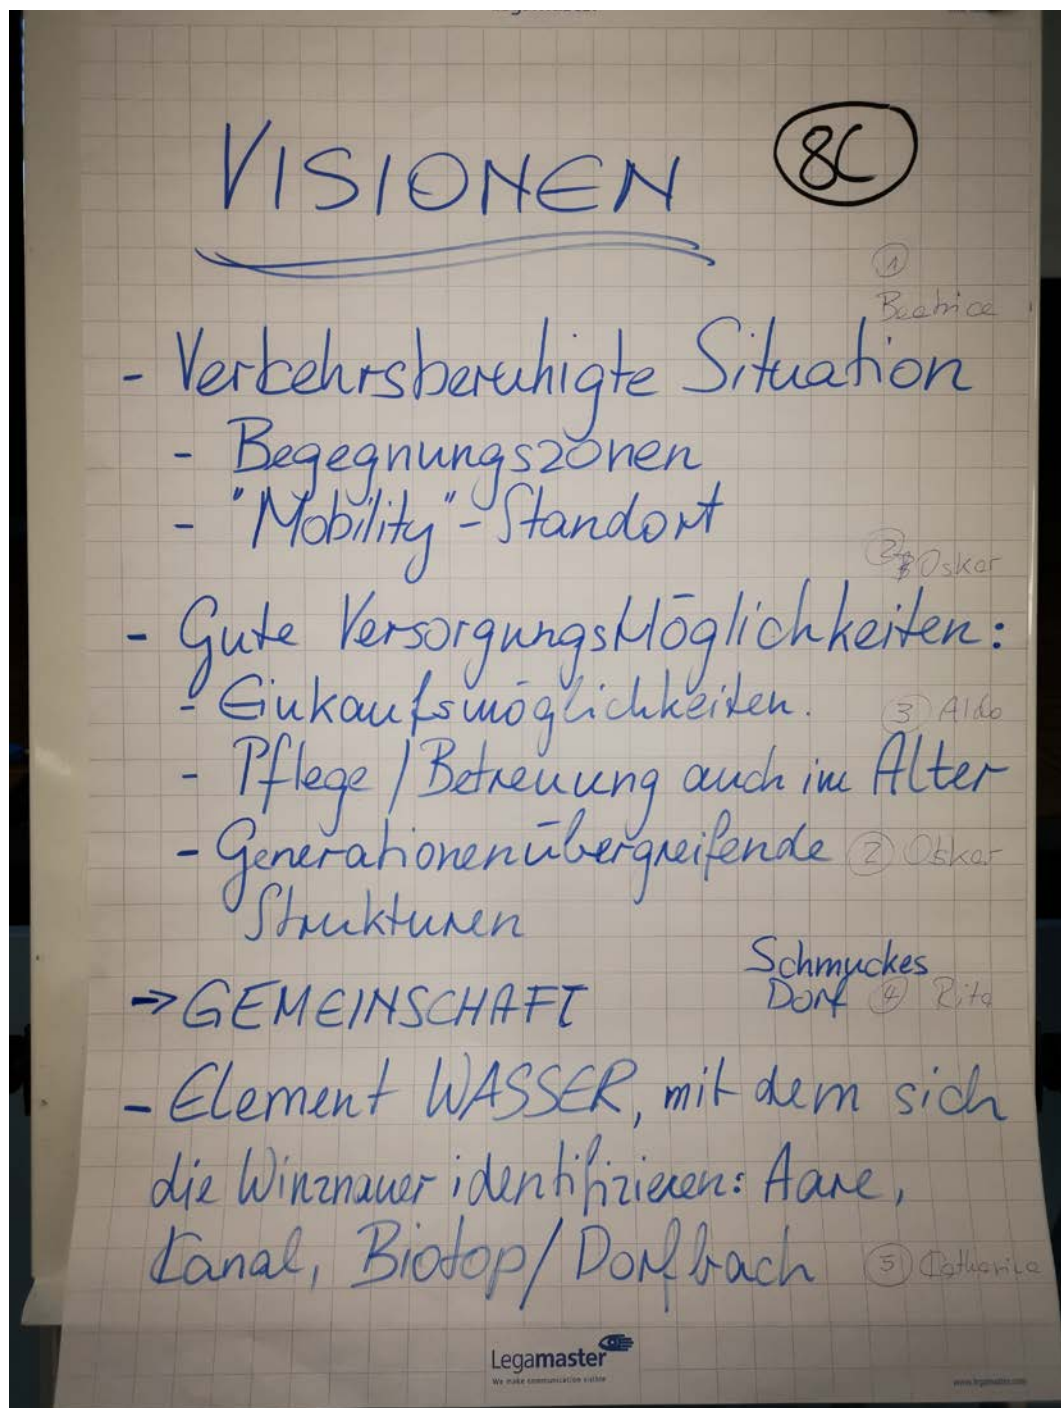 VISIONEN 8C
1
Beatrice
- Verkehrsberuhigte Situation
- Begegnungszonen
- "Mobility"-Standort
2 Oskar
- Gute VersorgungsMöglichkeiten:
- Einkaufsmöglichkeiten.
3 Aldo
- Pflege / Betreuung auch im Alter
- Generationenübergreifende 2 Oskar
Strukturen
Schmuckes
Dorf 4 Rita
→ GEMEINSCHAFT
- Element WASSER, mit dem sich
die Winznauer identifizieren: Aare,
Kanal, Biotop / Dorfbach 5 Catharina
Legamaster
We make communication visible
www.legamaster.com